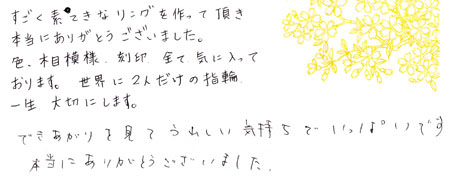 すごく素てきなリングを作って頂き
本当にありがとうございました。
色、木目模様、刻印 全て 気に入って
おります。 世界に2人だけの指輪
一生 大切にします。
できあがりを見て うれしい 気持ちで いっぱいです
本当に ありがとうございました.